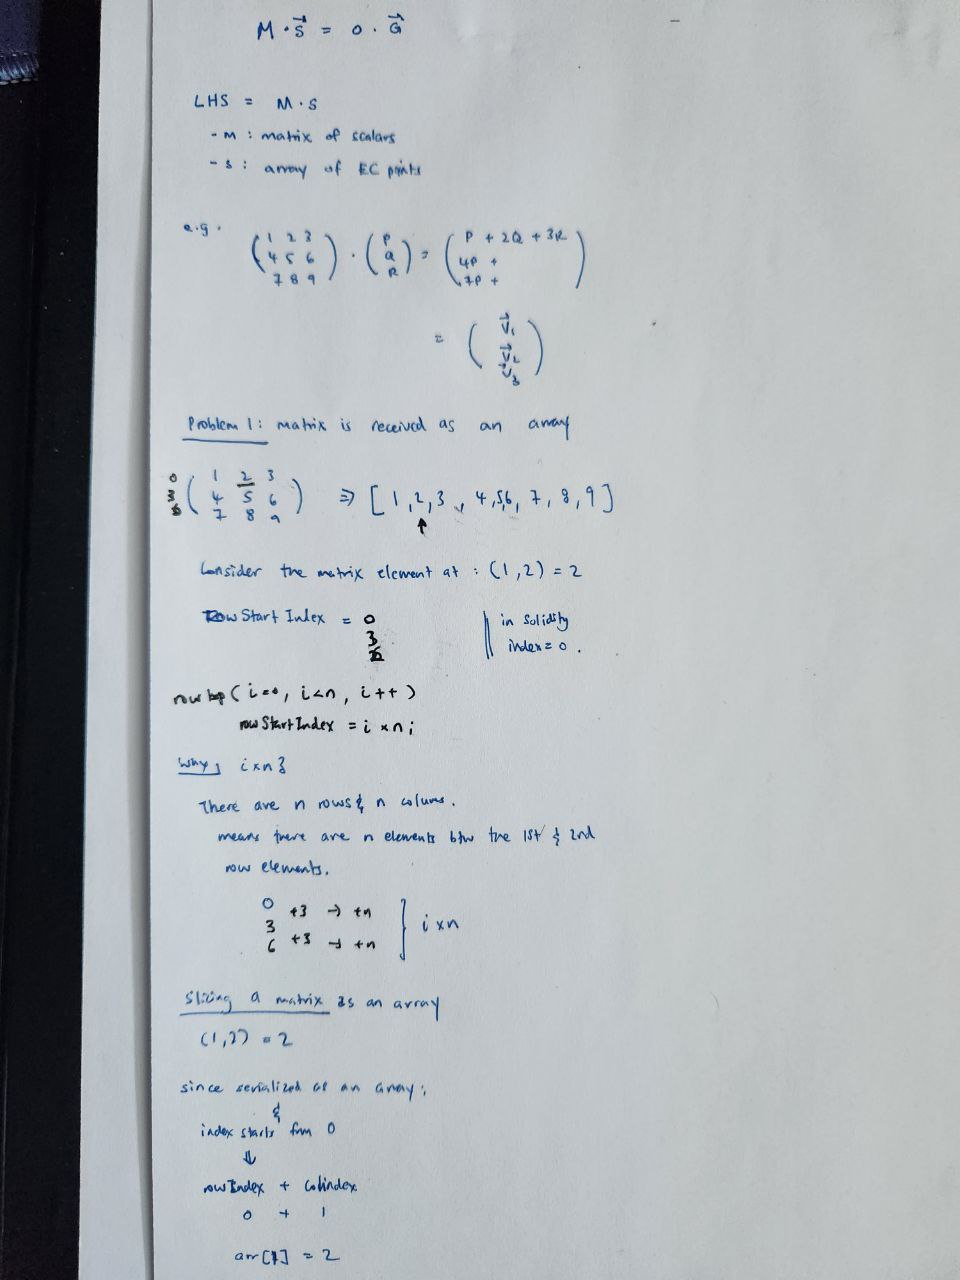 M · S⃗ = 0 · G⃗
LHS = M · S
- M : matrix of scalars
- s : array of EC points
e.g.
( 1 2 3 ) · ( P ) = ( P + 2Q + 3R )
( 4 5 6 ) ( Q ) ( 4P + )
( 7 8 9 ) ( R ) ( 7P + )
= ( V⃗₁ )
( V⃗₂ )
( V⃗₃ )
Problem 1 : matrix is received as an array
0 ( 1 2 3 ) ⇒ [ 1, 2, 3, 4, 5, 6, 7, 8, 9 ]
3 ( 4 5 6 ) ↑
6 ( 7 8 9 )
Consider the matrix element at : (1,2) = 2
Row Start Index = 0 || in solidity
3 || index = 0 .
6
row loop ( i=0, i<n, i++ )
row Start Index = i × n ;
Why, i × n ?
There are n rows & n colums.
means there are n elements btw the 1st & 2nd
row elements.
0 +3 → +n
3 } i × n
6 +3 → +n
Slicing a matrix as an array
(1,2) = 2
since serialized as an array ;
&
index starts frm 0
⇓
row Index + colindex
0 + 1
arr [1] = 2